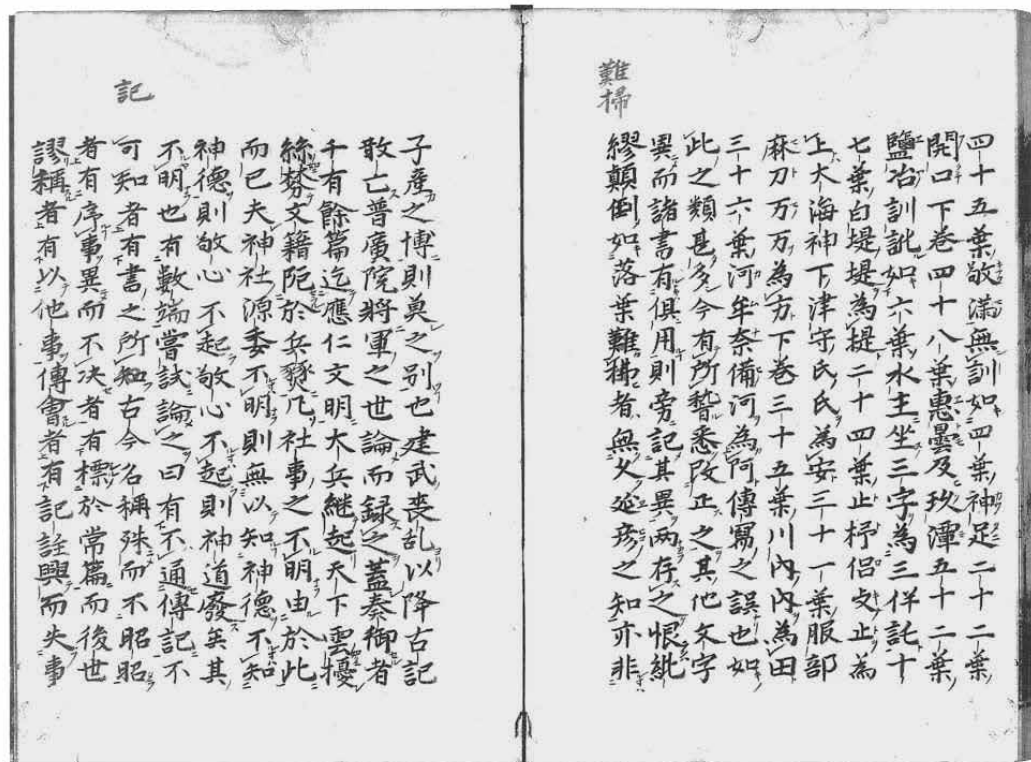 難掃
四十五葉敬滿無訓如四葉神足二十二葉
開口下卷四十八葉惠曇及玖潭五十二葉
鹽冶訓訛如六葉水主坐三字為三佯託十
七葉白堤堤為提二十四葉止杼侶支止為
上大海神下津守氏氏為安三十一葉服部
麻刀万万為方下卷三十五葉川內內為田
三十六葉河牟奈備河為阿傳寫之誤也如
此之類甚多今有所暫悉改正之其他文字
異而諸書有俱用則旁記其異兩存之恨紕
繆顛倒如落葉難拂者無父延彦之知亦非
記
子產之博則奠之別也建武喪乱以降古記
散亡普廣院將軍之世論而録之蓋奏御者
千有餘篇迄應仁文明大兵継起天下雲擾
絲棼文籍阨於兵燹凡社事之不明由於此
而已夫神社源委不明則無以知神德不知
神德則敬心不起敬心不起則神道廢矣其
不明也有數端嘗試論之曰有不通傳記不
可知者有書之所知古今名稱殊而不昭昭
者有序事異而不决者有標於常篇而後世
謬稱者有以他事傳會者有記註興而失事